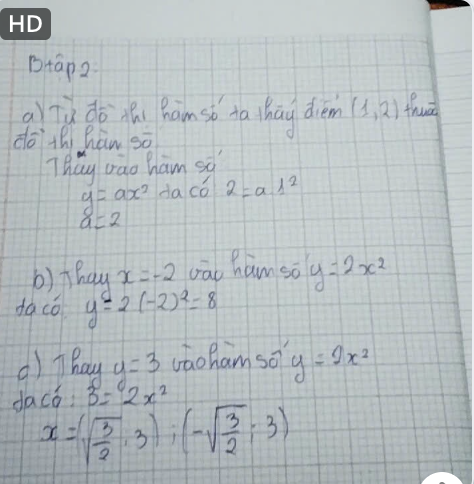 HD
Btập2.
a) Từ đồ thị hàm số ta thấy điểm (1,2) thuộc
đồ thị hàm số
Thay vào hàm số
y = ax² ta có 2 = a.1²
a = 2
b) Thay x = -2 vào hàm số y = 2x²
ta có y = 2(-2)² = 8
c) Thay y = 3 vào hàm số y = 2x²
ta có : 3 = 2x²
x = (√3/2 ; 3) ; (-√3/2 ; 3)